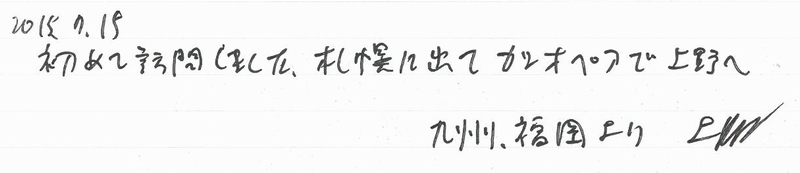 2015, 7. 19
初めて訪問しました、札幌に出て カシオペアで 上野へ
九州、福岡より 上